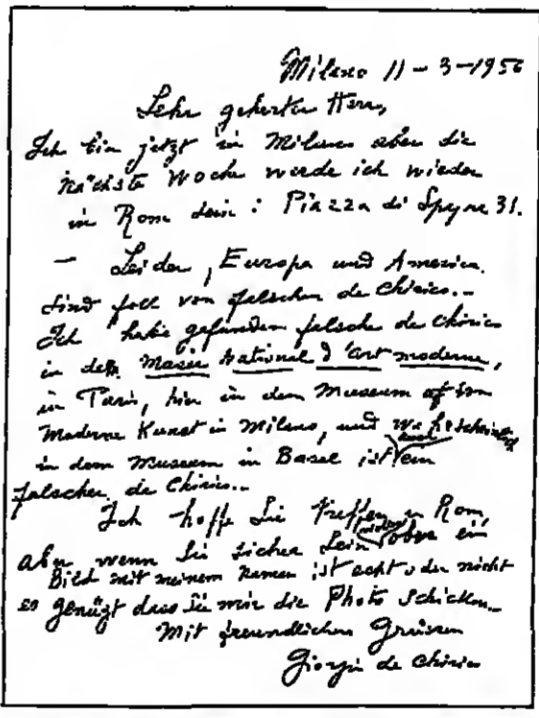 Milano 11-3-1956
Sehr geherter Herr,
Ich bin jetzt in Milano aber die
nächste Woche werde ich wieder
in Rom sein: Piazza di Spagna 31.
— Leider, Europa und America
sind foll von falschen de Chirico..
Ich habe gefunden falsche de Chirico
in dem Musée National d'art moderne,
in Paris, hier in dem Museum of
Moderne Kunst in Milano, und wahrscheinlich
in dem Museum in Basel ist auch ein
falscher de Chirico..
Ich hoffe Sie treffen in Rom,
aber wenn Sie sicher sein wollen ob ein
Bild mit meinem Namen ist echt oder nicht
es genügt dass Sie mir die Photo schicken..
Mit freundlichen Grüssen
Giorgio de Chirico